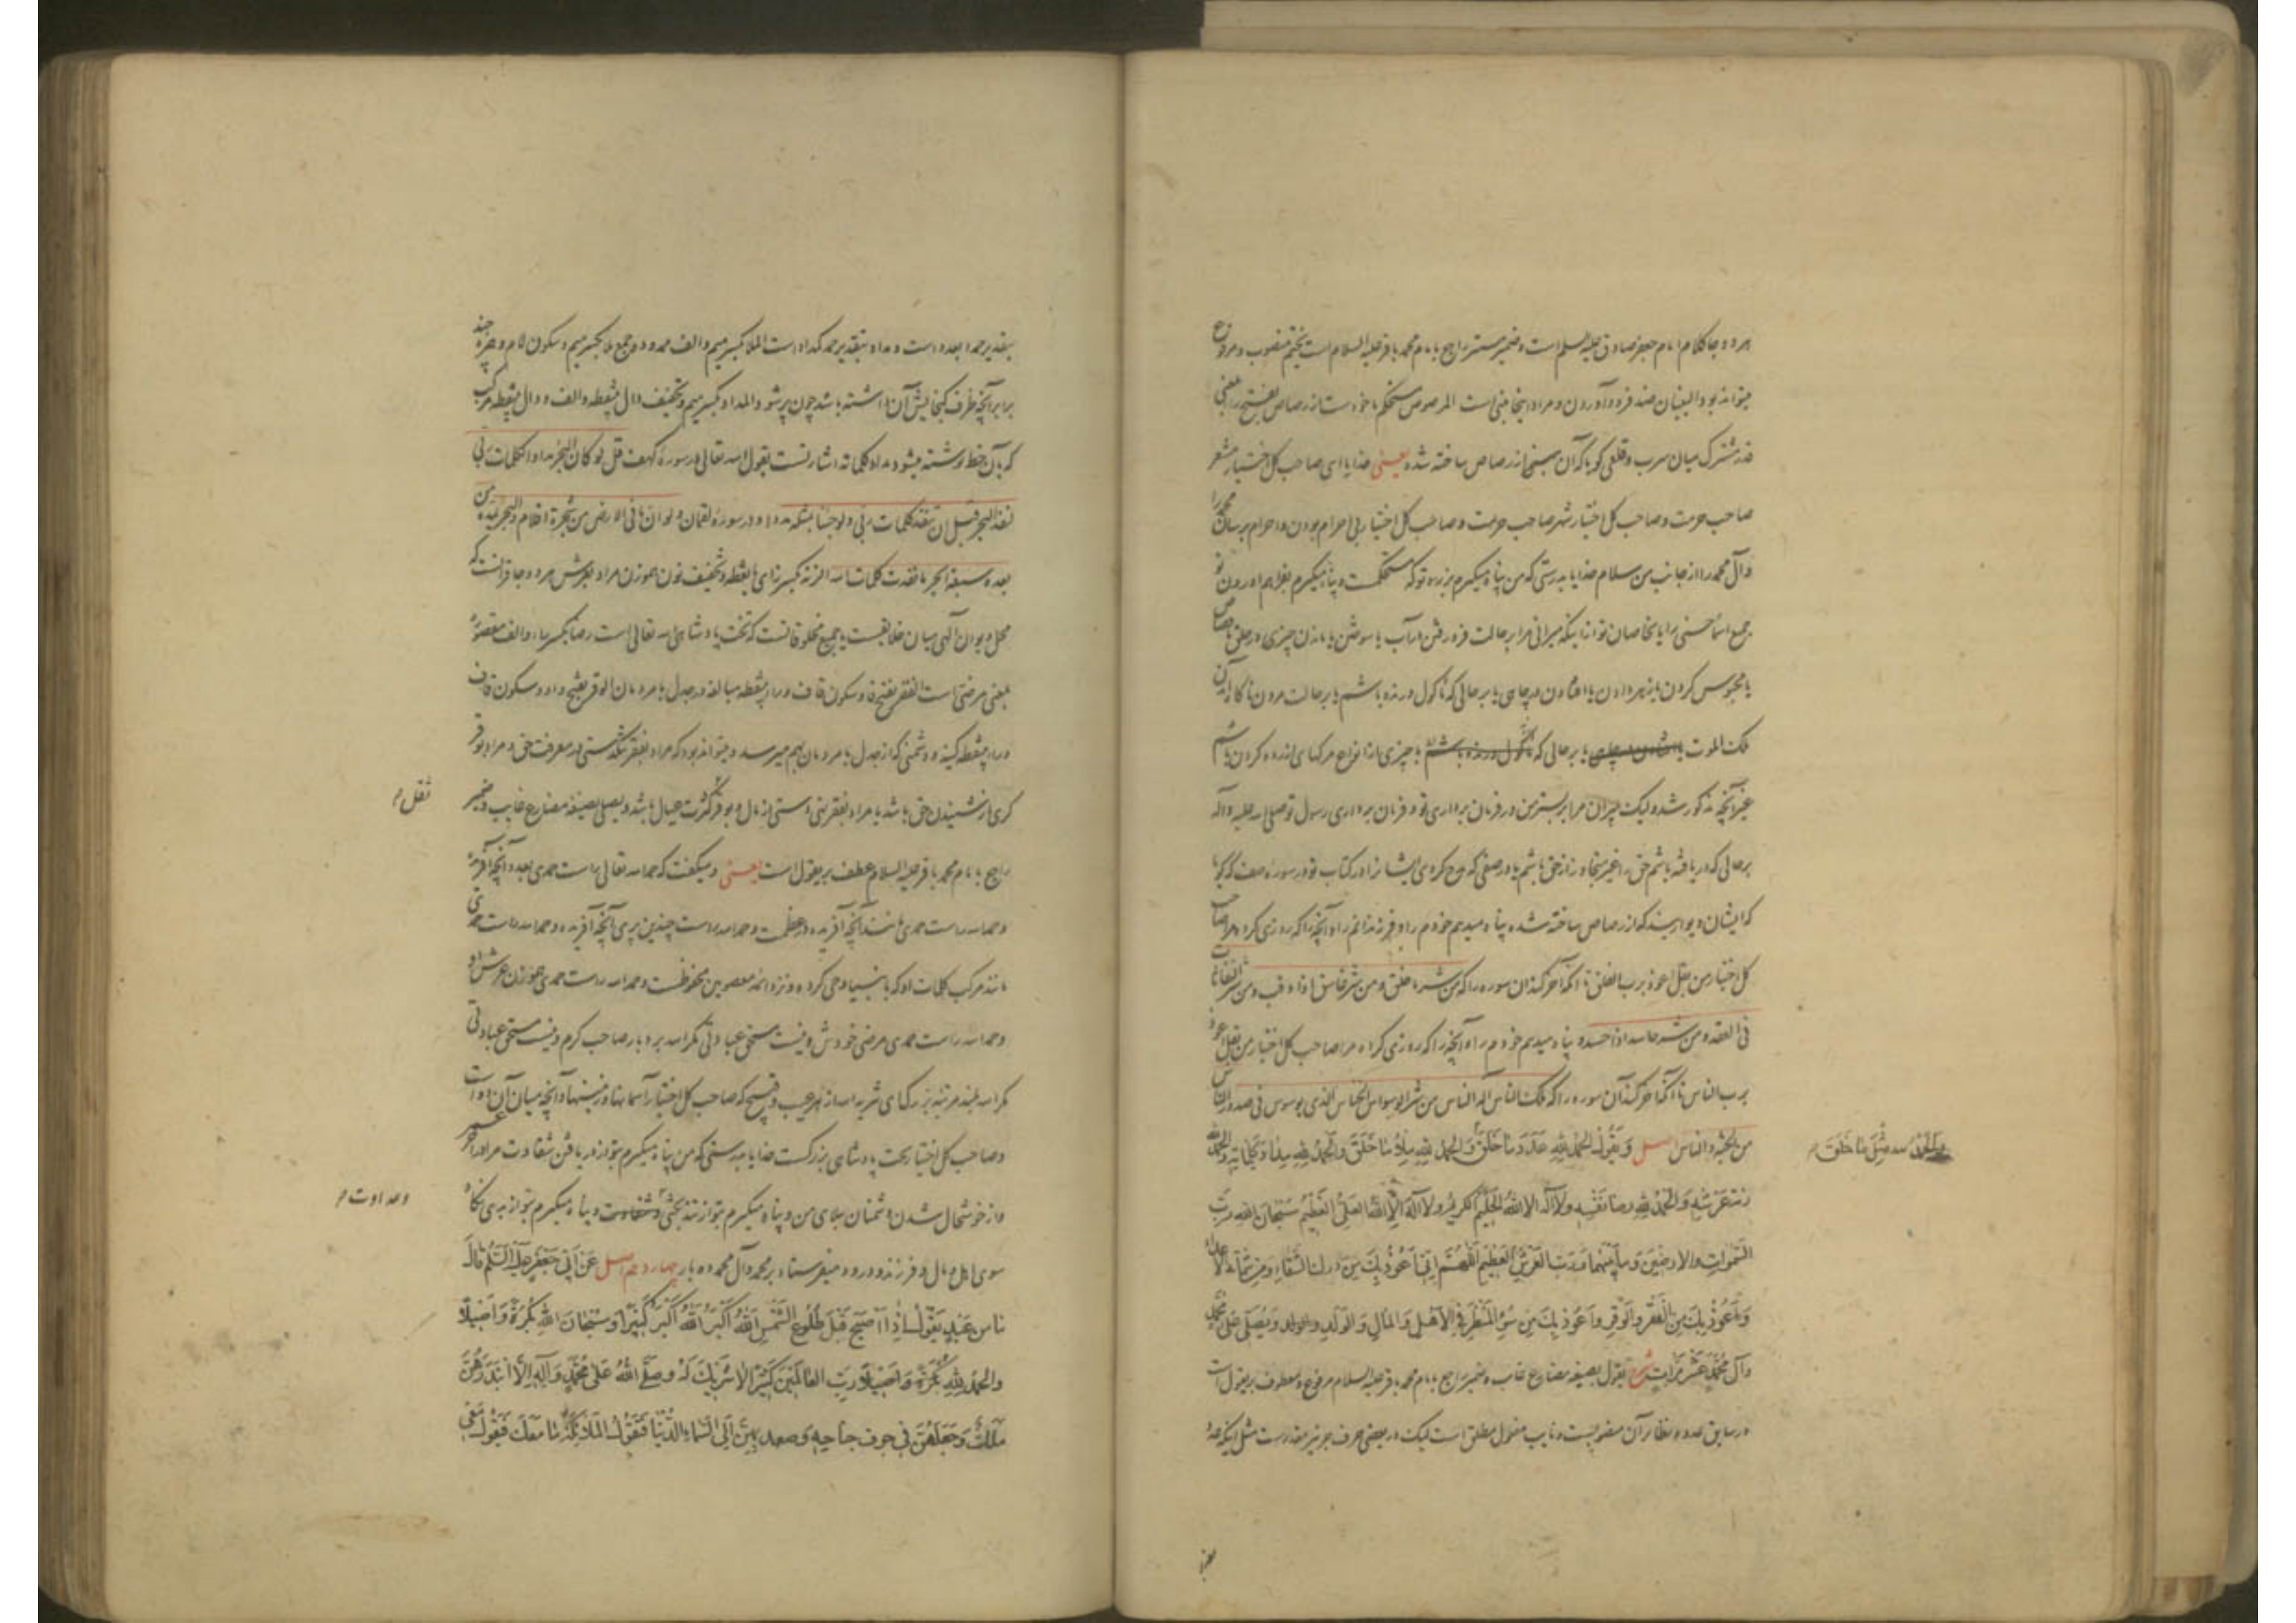 هر دو جا کلام امام جعفر صادق علیه السلم است و ضمیر مستتر راجع بامام محمد باقر علیه السلام است یختم منصوب و مرفوع
میتواند بود البنیان ضد فرود آوردن و مراد اینجا مبنی است المرصوص مستحکم ماخوذ است از رصاص بفتح را بمعنی
قدر مشترک میان سرب و قلعی گویا که آن مبنی از رصاص ساخته شده یعنی خدایا ای صاحب کل اختیار مشعر
صاحب حرمت و صاحب کل اختیار شهر صاحب حرمت و صاحب کل اختیار بی احرام بودن و احرام برسان محمد را
و آل محمد را از جانب من سلام خدایا بدرستی که من پناه میگیرم بزره تو که مستحکمست و پناه میگیرم بفراهم آوردن تو
جمیع اسماء حسنی را یا خاصان تو از اینکه میرانی مرا بر حالت فرو رفتن در آب یا سوختن یا ماندن چیزی در حلق یا قصاص
یا محبوس کردن یا زهر دادن یا افتادن در چاهی یا بر حالی که ماکول درنده باشم یا بر حالت مردن ناگاه آمدن
ملک الموت یا بر حالی که یا چیزی از انواع مرگهای آزرده کردن باشم
غیر آنچه مذکور شد و لیک میران مرا بر بسترمن در فرمان برداری تو و فرمان برداری رسول تو صلی الله علیه و آله
بر حالی که دریافته باشم حق را غیر متجاوز از حق باشم یا در صفی که مدح کردی ایشان را در کتاب تو در سوره صف که گویا
که ایشان دیواریند که از رصاص ساخته شده پناه میدهم خودم را و فرزندانم را و آنچه را که روزی کرد مرا صاحب
کل اختیار من بقل اعوذ برب الفلق تا آنکه آخر کند آن سوره را که من شر ما خلق و من شر غاسق اذا وقب و من شر النفاثات
فی العقد و من شر حاسد اذا حسد و پناه میدهم خودم را و آنچه را که روزی کرد مرا صاحب کل اختیار من بقل اعوذ
برب الناس تا آنکه آخر کند آن سوره را که ملک الناس اله الناس من شر الوسواس الخناس الذی یوسوس فی صدور الناس
من الجنة و الناس اصل وَیَقُولُ الْحَمْدُ لِلّهِ عَدَدَ مَا خَلَقَ وَ الْحَمْدُ لِلّهِ مِلْأَ مَا خَلَقَ وَ الْحَمْدُ لِلّهِ مِدَادَ کَلِمَاتِهِ وَ الْحَمْدُ لِلّهِ
والحمد لله مِثْلَ مَا خَلَقَ م
زنة عَرْشِهِ وَ الْحَمْدُ لِلّهِ رضا نَفْسِهِ وَلا اله الا اللهُ الْحَلِیمُ الکریمُ ولا اله الا اللهُ العَلِیُّ العَظِیمُ سُبْحَانَ اللهِ رَبِّ
السَّمواتِ والارضینَ وَ مابَیْنَهما وَ رَبِّ الْعَرْشِ الْعَظِیمِ اَللّهُمَّ اِنّی اَعُوذُ بِکَ مِنْ درکِ الشَّقَاءِ وَ مِن شَمَاتَةِ الاعداء
وَ اَعُوذُ بِکَ مِنَ الْفَقْرِ وَ الْوَقْرِ وَ اَعُوذُ بِکَ مِن سُوءِ الْمَنْظَرِ فِی الْاَهْلِ وَ الْمَالِ وَ الْوَلَدِ وَ یُصَلّی عَلی مُحَمَّدٍ
وآل مُحَمَّدٍ عَشْرَ مَرّاتٍ شرح یقول بصیغه مضارع غایب و ضمیر راجع بامام محمد باقر علیه السلام مرفوع و معطوف بر یقول است
در سابق عدد و نظایر آن منصوبست و نایب مفعول مطلق است لیک در بعضی حرف جر نیز مقدرست مثل اینکه عدد
بتقدیر حمدا بعدد است و مداد بتقدیر حمد کمداد است الملا بکسر میم و الف ممدوده جمع ملا بکسر میم و سکون لام و همزه چند
برابر آنچه ظرف گنجایش آن داشته باشد چون پر شود المداد بکسر میم و تخفیف دال بینقطه و الف و دال بینقطه مرکب
که بآن خط نوشته میشود مداد کلماته اشارتست بقول الله تعالی در سوره کهف قل لو کان البحر مدادا لکلمات ربی
لنفد البحر قبل ان تنفد کلمات ربی و لو جئنا بمثله مددا و در سوره لقمان و لو ان ما فی الارض من شجرة اقلام و البحر یمده من
بعده سبعة ابحر ما نفدت کلمات الله الزنة بکسر زای بانقطه و تخفیف نون هموزن مراد بعرش هر دو جا قرآنست که
محل دیوان الهی میان خلایقست یا جمیع مخلوقاتست که تخت پادشاهی الله تعالی است رضا بکسر راء و الف مقصوره
بمعنی مرضی است الفقر بفتح فا و سکون قاف و راء بینقطه مبالغه در جدل با مردمان الوقر بفتح واو و سکون قاف
و راء بینقطه کینه و دشمنی که از جدل با مردمان بهم میرسد و میتواند بود که مراد بفقر شکستی در معرفت حق و مراد بوقر
کری از شنیدن حق باشد یا مراد بفقر تهی دستی از مال و بوقر کثرت عیال باشد و یصلی بصیغه مضارع غایب و ضمیر
ثقل م
راجع بامام محمد باقر علیه السلام عطف بر یقول است یعنی و میگفت که حمد الله تعالی راست حمدی بعدد آنچه آفریده
و حمد الله راست حمدی مانند آنچه آفریده در عظمت و حمد الله راست چندین پری آنچه آفریده و حمد الله راست حمدی
مانند مرکب کلمات او که بانبیا وحی کرده و نزد ائمه معصومین محفوظست و حمد الله راست حمدی هموزن عرش او
و حمد الله راست حمدی مرضی خودش و نیست مستحق عبادتی مگر الله بردبار صاحب کرم و نیست مستحق عبادتی
مگر الله بلند مرتبه بزرگ تنزیه الله از هر عیب و قبیح که صاحب کل اختیار آسمانها و زمینها و آنچه میان آن دو است
و صاحب کل اختیار تخت پادشاهی بزرگست خدایا بدرستی که من پناه میگیرم بتو از دریافتن شقاوت مرا در آخر عمر
و از خوشحال شدن دشمنان ببلای من و پناه میگیرم بتو از و پناه میگیرم بتو از بدی نگاه
و عداوت م
سوی اهل و مال و فرزند و درود میفرستاد بر محمد و آل محمد ده بار چهاردهم اصل عَنْ اَبِی جَعْفَرٍ عَلَیْهِ السَّلم قَالَ
مَا مِن عَبْدٍ یَقُولُ اِذَا اَصْبَحَ قَبْلَ طُلُوعِ الشَّمْسِ اَللهُ اَکْبَرُ اَللهُ اَکْبَرُ کَبِیراً وَ سُبْحَانَ اللهِ بُکْرَةً وَ اَصِیلاً
وَ الْحَمْدُ لِلّهِ رَبِّ الْعَالَمِینَ کَثِیراً لا شَرِیکَ لَهُ وَ صَلَّی اللهُ عَلی مُحَمَّدٍ وَ آلِهِ اِلّا ابْتَدَرَهُنَّ
مَلَکٌ وَ جَعَلَهُنَّ فی جوف جناحِهِ وَ صعد بِهِنَّ اِلَی السَّمَاءِ الدُّنْیَا فَتَقُولُ الْمَلائِکَةُ مَا مَعَکَ فَیَقُولُ مَعِی